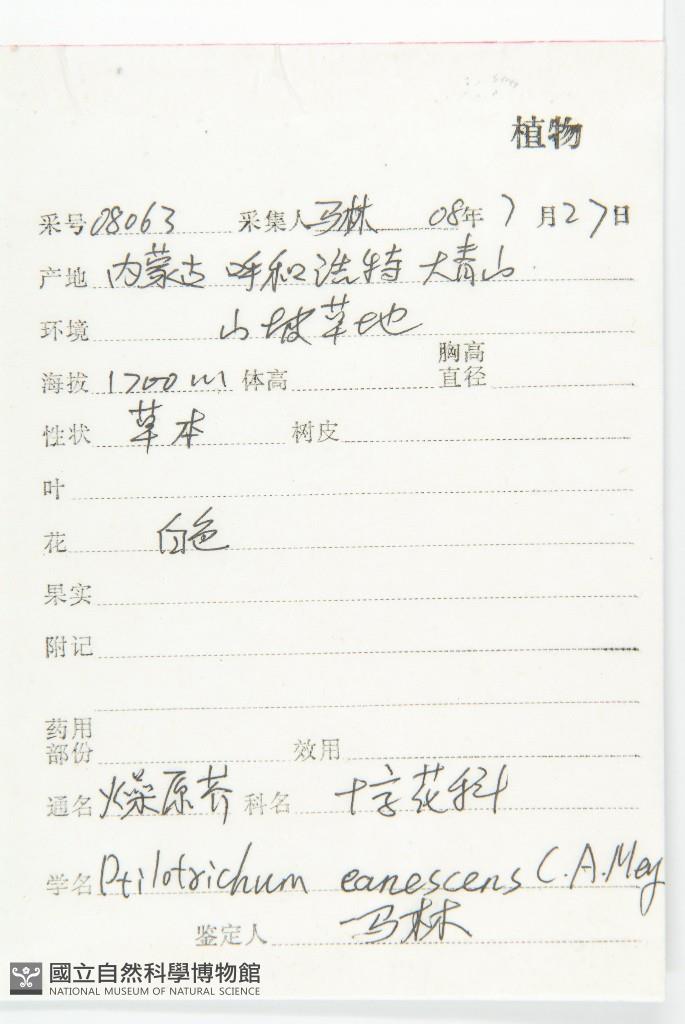 植物
采号 08063 采集人 马林 08年 7 月 27 日
产地 内蒙古 呼和浩特 大青山
环境 山坡草地
海拔 1700m 体高 胸高直径
性状 草本 树皮
叶
花 白色
果实
附记
药用部份 效用
通名 燥原荠 科名 十字花科
学名 Ptilotrichum eanescens C.A.Mey
鉴定人 马林
國立自然科學博物館
NATIONAL MUSEUM OF NATURAL SCIENCE